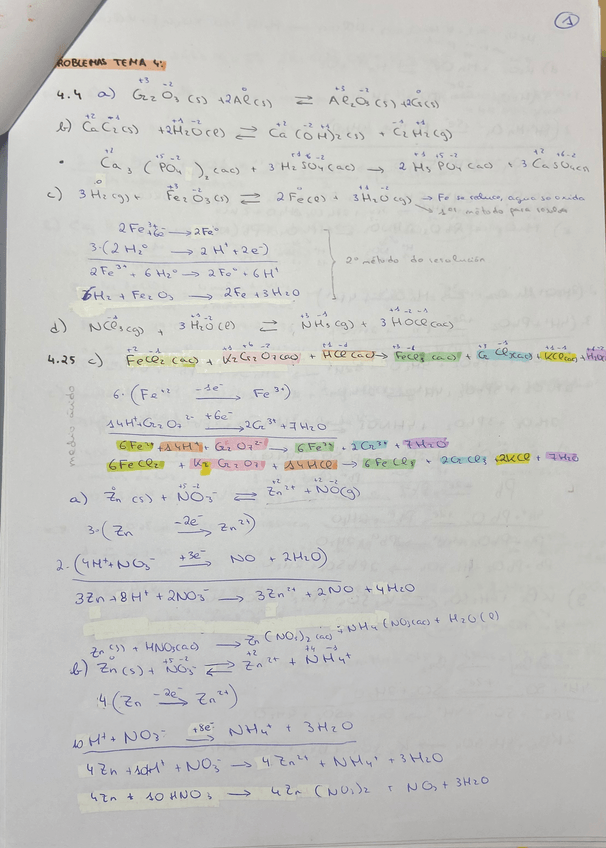 1
PROBLEMAS TEMA 4:
4.4 a) Cr₂O₃ (s) + 2Al(s) ⇌ Al₂O₃ (s) + 2Cr(s)
b) CaC₂(s) + 2H₂O(l) ⇌ Ca(OH)₂(s) + C₂H₂(g)
· Ca₃(PO₄)₂(ac) + 3H₂SO₄(ac) → 2H₃PO₄(ac) + 3CaSO₄(ac)
c) 3H₂(g) + Fe₂O₃(s) ⇌ 2Fe(l) + 3H₂O(g) → Fe se reduce, agua se oxida
→ 1er método para
2Fe³⁺ +6e⁻ → 2Fe⁰
3·(2H₂⁰ → 2H⁺ + 2e⁻)
2Fe³⁺ + 6H₂⁰ → 2Fe⁰ + 6H⁺
2º método de resolución
6H₂ + Fe₂O₃ → 2Fe + 3H₂O
d) NCl₃(g) + 3H₂O(l) ⇌ NH₃(g) + 3HOCl(ac)
4.25 c) FeCl₂(ac) + K₂Cr₂O₇(ac) + HCl(ac) → FeCl₃(ac) + CrCl₃(ac) + KCl(ac) + H₂O
medio ácido
6·(Fe⁺² -1e⁻→ Fe³⁺)
14H⁺ + Cr₂O₇²⁻ +6e⁻→ 2Cr³⁺ + 7H₂O
6Fe²⁺ + 14H⁺ + Cr₂O₇²⁻ → 6Fe³⁺ + 2Cr³⁺ + 7H₂O
6FeCl₂ + K₂Cr₂O₇ + 14HCl → 6FeCl₃ + 2CrCl₃ + 2KCl + 7H₂O
a) Zn(s) + NO₃⁻ ⇌ Zn²⁺ + NO(g)
3·(Zn -2e⁻→ Zn²⁺)
2·(4H⁺ + NO₃⁻ +3e⁻→ NO + 2H₂O)
3Zn + 8H⁺ + 2NO₃⁻ → 3Zn²⁺ + 2NO + 4H₂O
Zn(s) + HNO₃(ac) → Zn(NO₃)₂(ac) + NH₄(NO₃)(ac) + H₂O(l)
b) Zn(s) + NO₃⁻ ⇌ Zn²⁺ + NH₄⁺
4(Zn -2e⁻→ Zn²⁺)
10H⁺ + NO₃⁻ +8e⁻→ NH₄⁺ + 3H₂O
4Zn + 10H⁺ + NO₃⁻ → 4Zn²⁺ + NH₄⁺ + 3H₂O
4Zn + 10HNO₃ → 4Zn(NO₃)₂ + NO₃ + 3H₂O